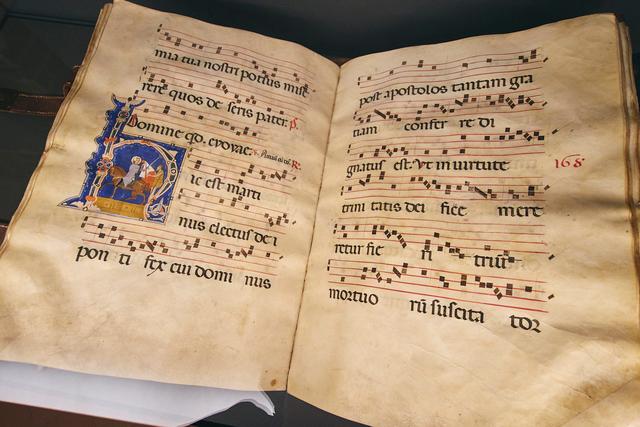 ma tua nostri potius mise
rere quos de seris pater. p.
Domine qd. evovae. R.
ic est marti
nus electus de i
pon ti fex cui domi nus
post apostolos tantam gra
tiam confer re di
gnatus est. Vt in uirtute
trini tatis dei fice mere
retur fie ri trium
mortuo rū suscita tor
168